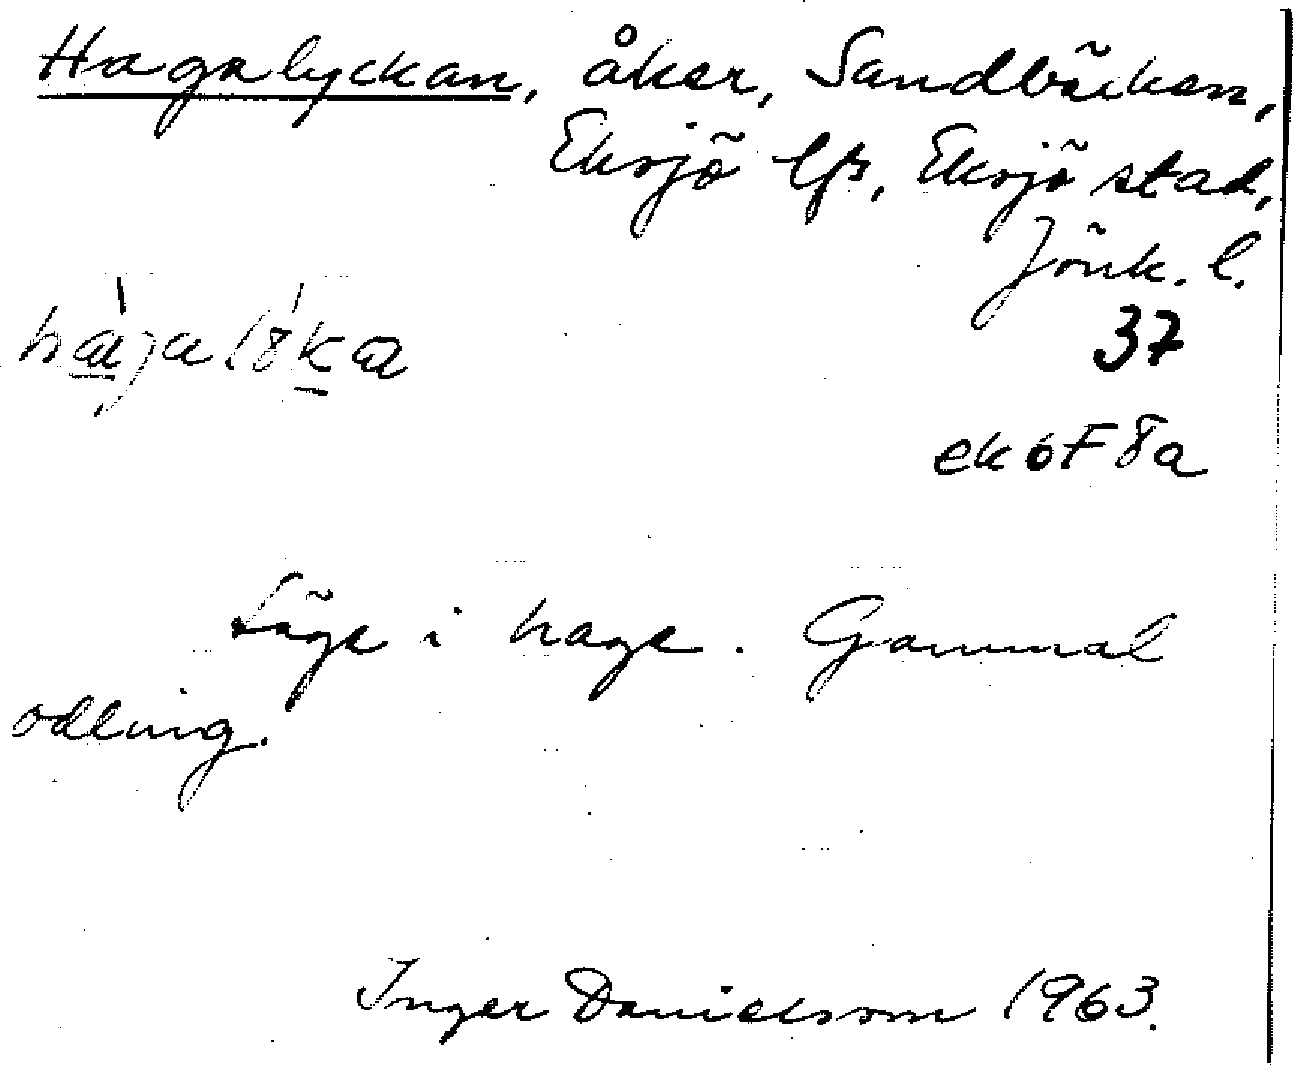 Hagalyckan, åker, Sandbäcken,
Eksjö lfs, Eksjö stad,
Jönk. l.
37
ek 6F 8a
Läge i hage. Gammal
odling.
Inger Danielsson 1963.